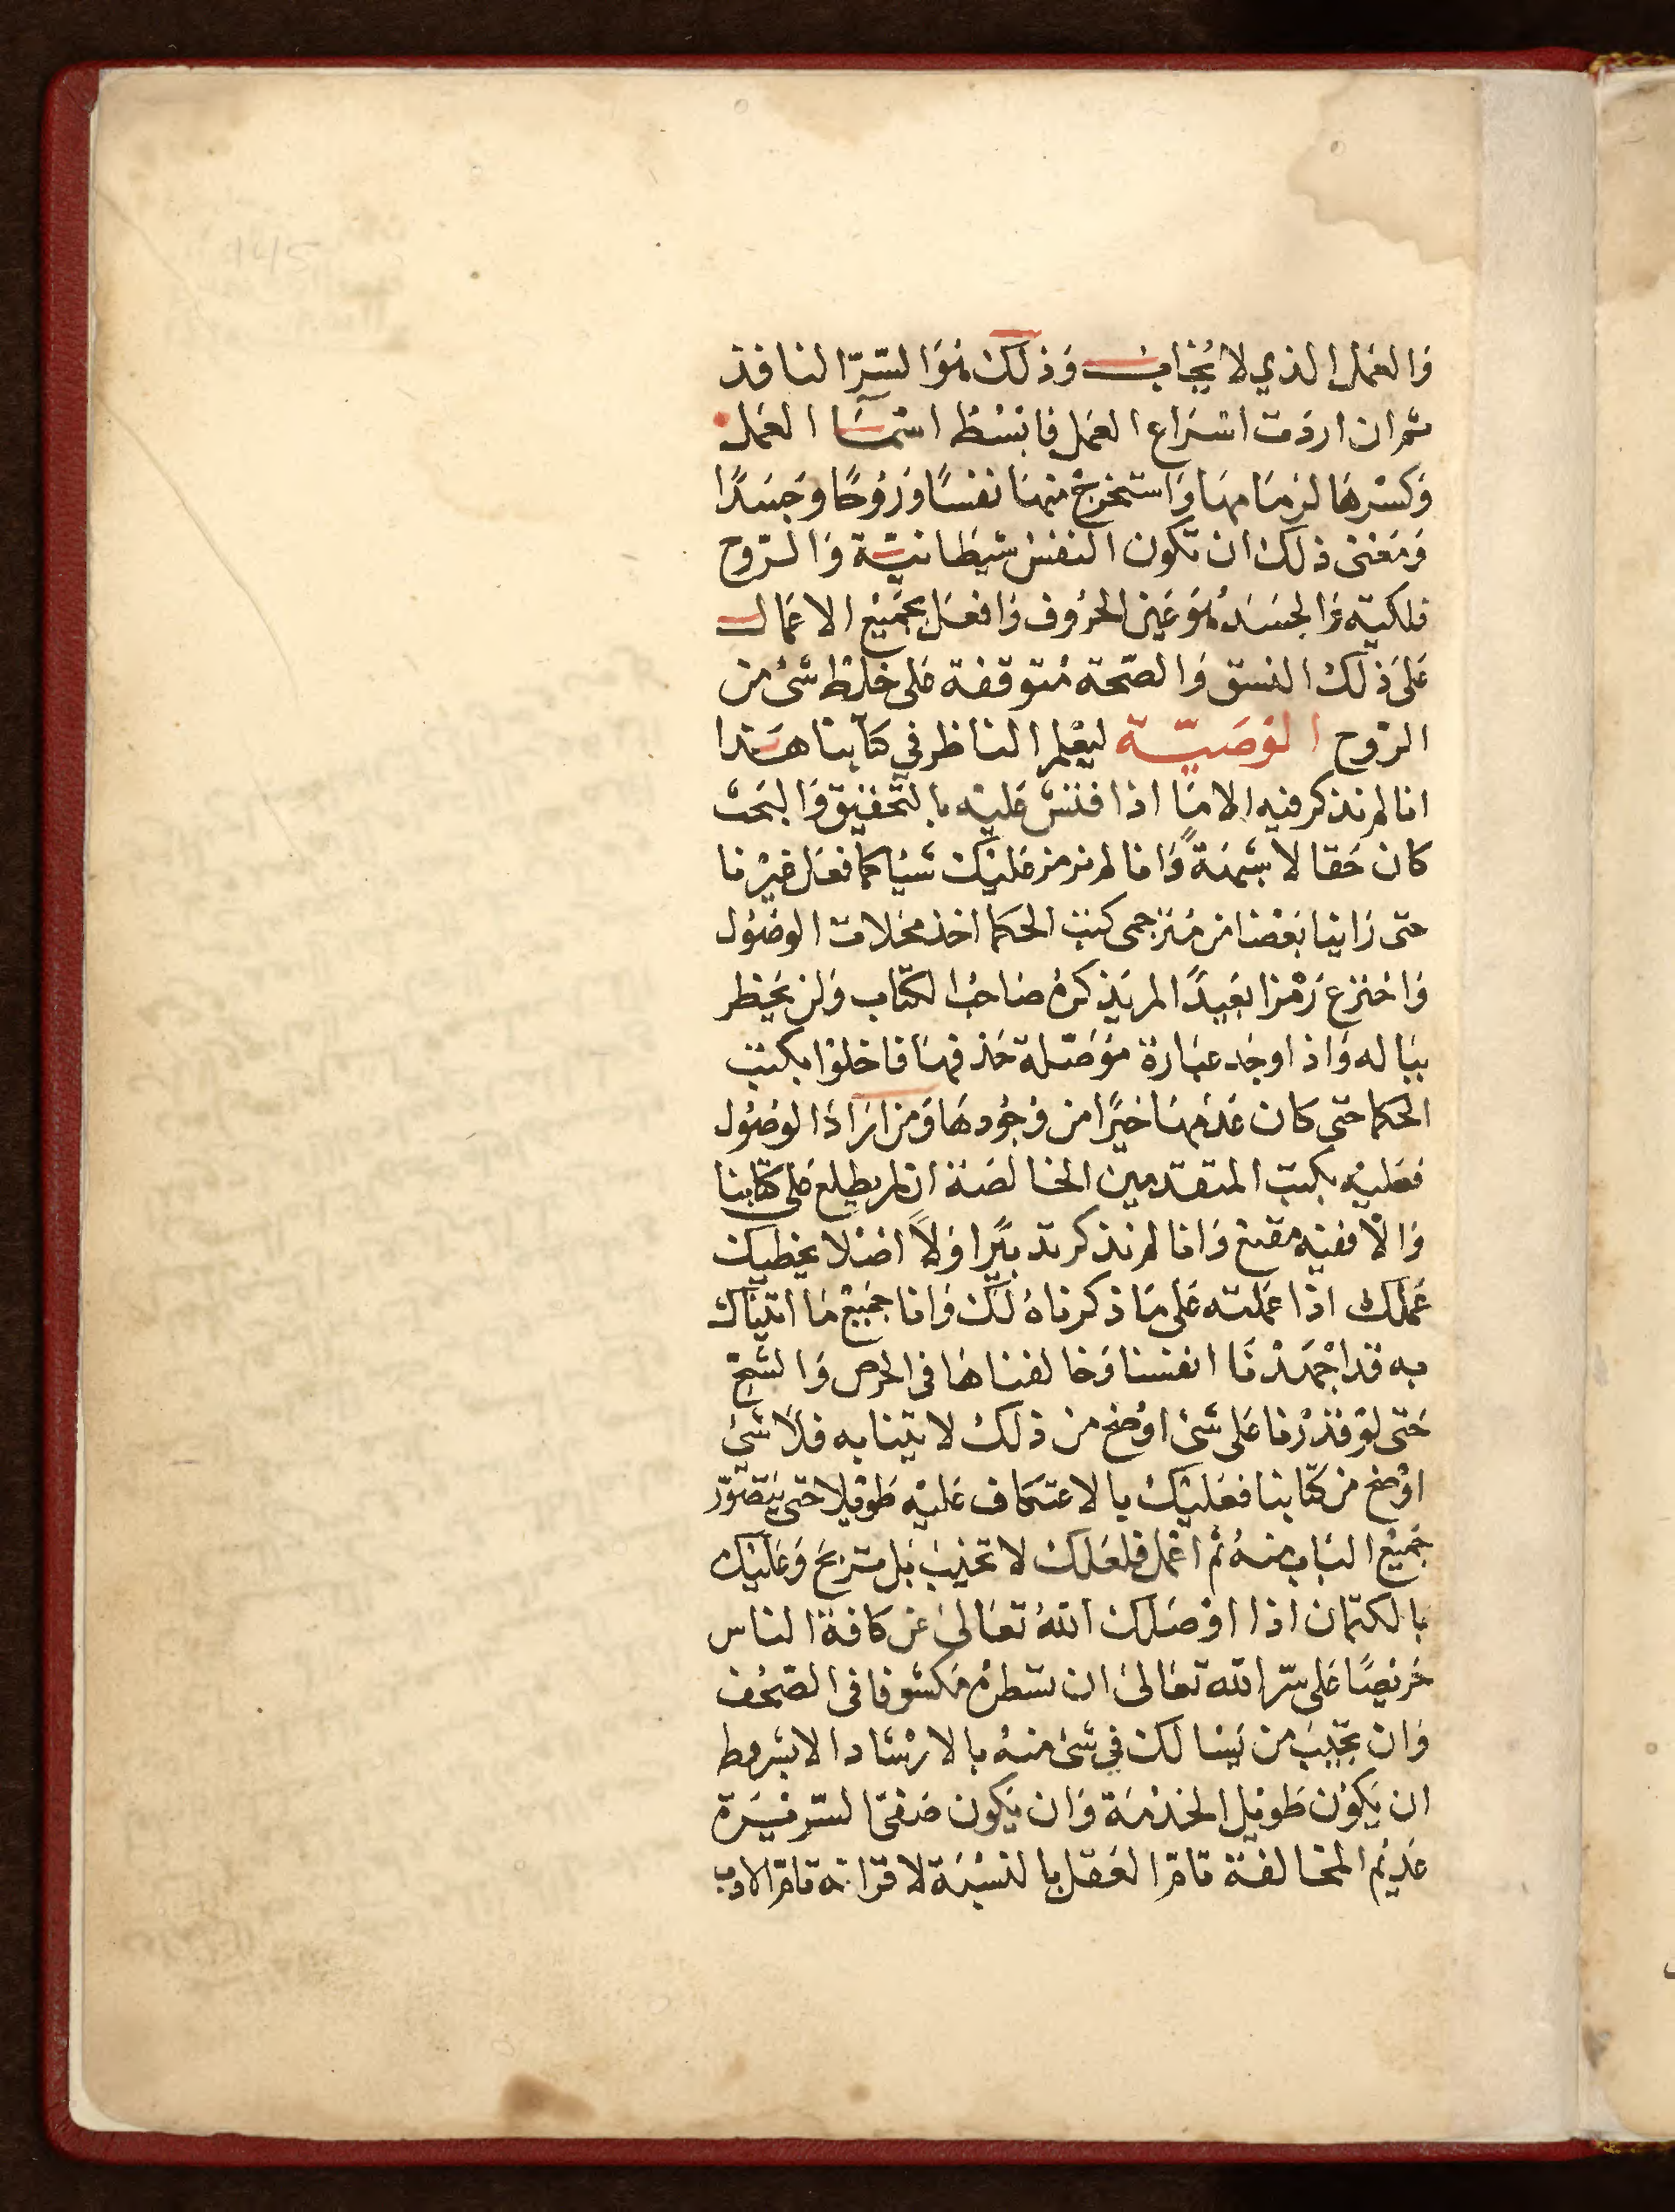 وَالعَمَل الذي لا يُخاب وَذلك هُوَ السّرّ النافذ
ثم ان اردَت اسْرَاع العَمَل فابسُط اسْمَآ العَمَل
وَكسّرهَا لزمَامهَا وَاستخرجْ منهَا نفسًا وَرُوحًا وَجَسَدًا
وَمَعْنى ذلك ان تكون النفسْ شيْطانيّة وَالرّوح
فلكيّه وَالجسَدُ هُوَ عَين الحرُوف وَافعَل بجَميْع الاعمَال
عَلى ذلك النسق وَالصّحة مُتوقفة على خلط شئ من
الرّوح الوَصَيّة ليعْلم الناظر في كتابنا هَذا
انا لم نذكر فيه الا مَا اذا فتش عَليْه بالتحقيق وَالبَحث
كان حَقا لا شبْهَةً وَانا لم نرمز عَليْك شيْا كما فعَل غيرْنا
حتى رَاينا بَعْضا من مُترجمى كتب الحكما اخذ محلات الوصُول
وَاخترع رَمْزا بَعيدًا لم يَذكرهُ صَاحبُ الكتاب وَلن يخطر
ببَاله وَاذا وجَد عبَارة مُوَصّلة حَذفهَا فاخلوْا بكتب
الحكما حتى كان عَدَمهَا خيرًا من وجُودهَا وَمن ارَادَ الوصُول
فعَليْه بكتب المتقدمين الخالصَة ان لم يطلع عَلى كتابنا
وَالا ففيْه مقنع وَانا لم نذكر تدبيرًا وَلا اضلا يخطيك
عَملك اذا عَملته عَلى مَا ذكرناهُ لك وَانا جَميْع مَا اتيناك
به قد اجْهَدْنَا انفسنا وَخالفناهَا فى الحرص وَالشحّ
حَتى لوْ قدَرْنا عَلى شئ اوْضح من ذلك لاتينا به فلا شئ
اوْضح من كتابنا فعَليْك بالاعتكاف عَليْه طويْلا حتى يتصَوّر
جَميْع البَاب منهُ ثم اعْمل فلعَلك لا تخيبَ بَل ستربحَ وَعَليْك
بالكتمان اذا اوْصَلك اللهُ تعَالى عَن كافة الناس
حَريْصًا عَلى سّر الله تعَالى ان تسْطرهُ مَكشوفا فى الصّحُف
وَان تجيبَ من يَسْالك في شئ منهُ بالارشاد الا بشرط
ان يَكوْن طويْل الخدْمَة وَان يَكون صَفىّ السّريْرة
عَديْم المخالفة تامّ العَقل بالنسْبَة لاقرانه تامّ الادب